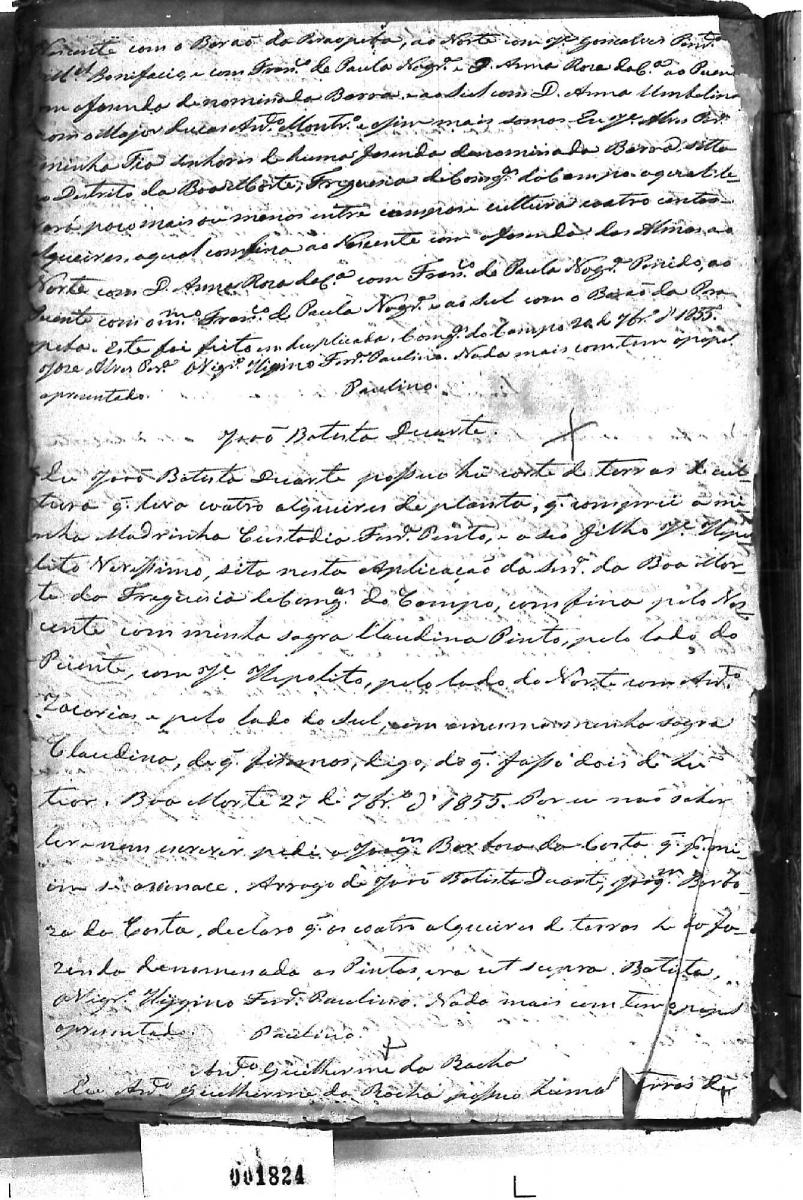 Nascente com o Barão do Paraopeba, ao Norte com Je. Gonçalves
Bonifacio, e com Franco. de Paula Nogra. e D. Anna Rosa de Ca. ao Puen
a fasenda denominada Barra e ao Sul com D. Anna Umbelina
com o Major Lucas Anto. Montro. e asim mais somos Eu Je. Alves Pera.
minha Tia senhores de huma fasenda denominada Barra sita
Destrito da Boa Morte, Freguesia de Congs. do Campo a qual le-
vará poco mais ou menos entre campos e cultura coatro centos
alqueires, a qual confina ao Nascente com a fasenda das Almas, ao
Norte com D. Anna Rosa de Ca. com Franco. de Paula Nogra. Penido, ao
Puente com o mmo. Franco. de Paula Nogra. e ao Sul com o Barão da Para
peba. Este foi feito em duplicada. Congs. do Campo 20 de 7bro. d' 1855.
Jose Alves Pera. O Vigro. Higino Frz. Paulino. Nada mais contem o papel
apresentado. Paulino.
João Batista Duarte.
Eu João Batista Duarte possuo hu corte de terras de cul-
tura q. leva coatro alqueires de planta, q. comprei a mi-
nha Madrinha Custodia Frz. Pinto, e a seo filho Je. Hipo
lito Verissimo, sita nesta Aplicação da Snra. da Boa Mor-
te da Freguesia de Congs. do Campo, comfina pelo Nas
cente com minha sogra Claudina Pinto, pelo lado do
Puente, com Je. Hipolito, pelo lado do Norte com Anto.
Zacarias e pelo lado do Sul, com a mesma minha sogra
Claudina, de q. firmos, digo, do q. fasso dois de hu
tior. Boa Morte 27 de 7bro. d' 1855. Por eu não saber
ler e nem escrever pedi a Joaqm. Barbosa da Costa q. pr. mi-
im se asinace. Arrogo de João Batista Duarte, Joaqm. Barbo-
za da Costa, declaro q. os coatro alqueires de terras he da fa-
zenda denomenada os Pintos, era ut supra. Batista,
O Vigro. Higgino Frz. Paulino. Nada mais contem o papel
apresentado. Paulino.
Anto. Guilherme da Rocha
Eu Anto. Guilherme da Rocha posuo humas terras de
001824